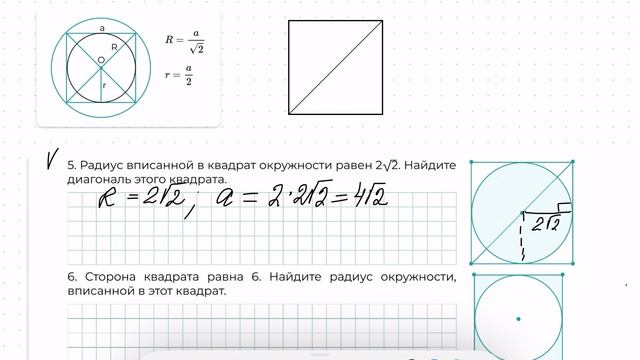 a
R
O
r
R = a/√2
r = a/2
V
5. Радиус вписанной в квадрат окружности равен 2√2. Найдите
диагональ этого квадрата.
R = 2√2 ; a = 2·2√2 = 4√2
2√2
6. Сторона квадрата равна 6. Найдите радиус окружности,
вписанной в этот квадрат.